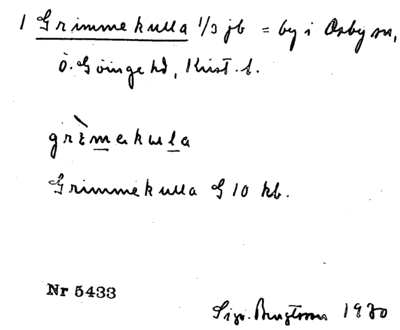 1 Grimmekulla 1/3 jb = by i Osby sn,
Ö. Göinge hd, Krist. l.
grèmekula
Grimmekulla G 10 kb.
Nr 5433
1930